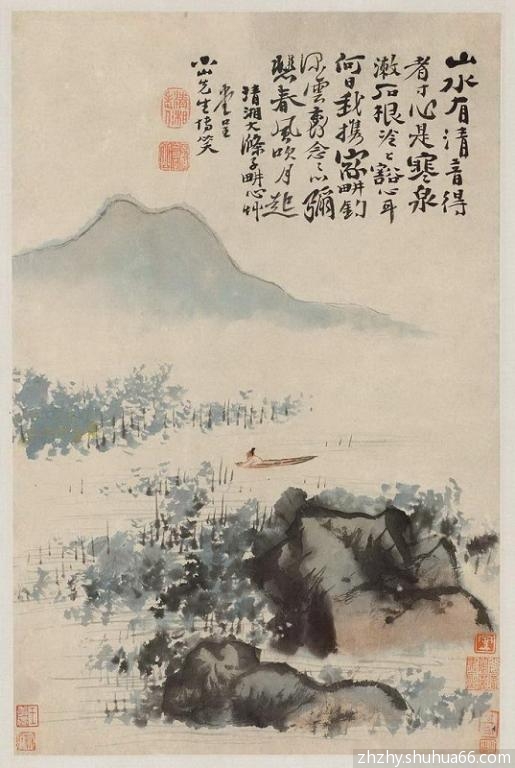 山水有清音得
者寸心是寒泉
漱石根冷々豁心耳
何日我攜家畊釣
深雲裏念之心彌
春風吹月起
清湘大滌子畊心艸
堂呈
小山先生博笑
zhzhy.shuhua66.com